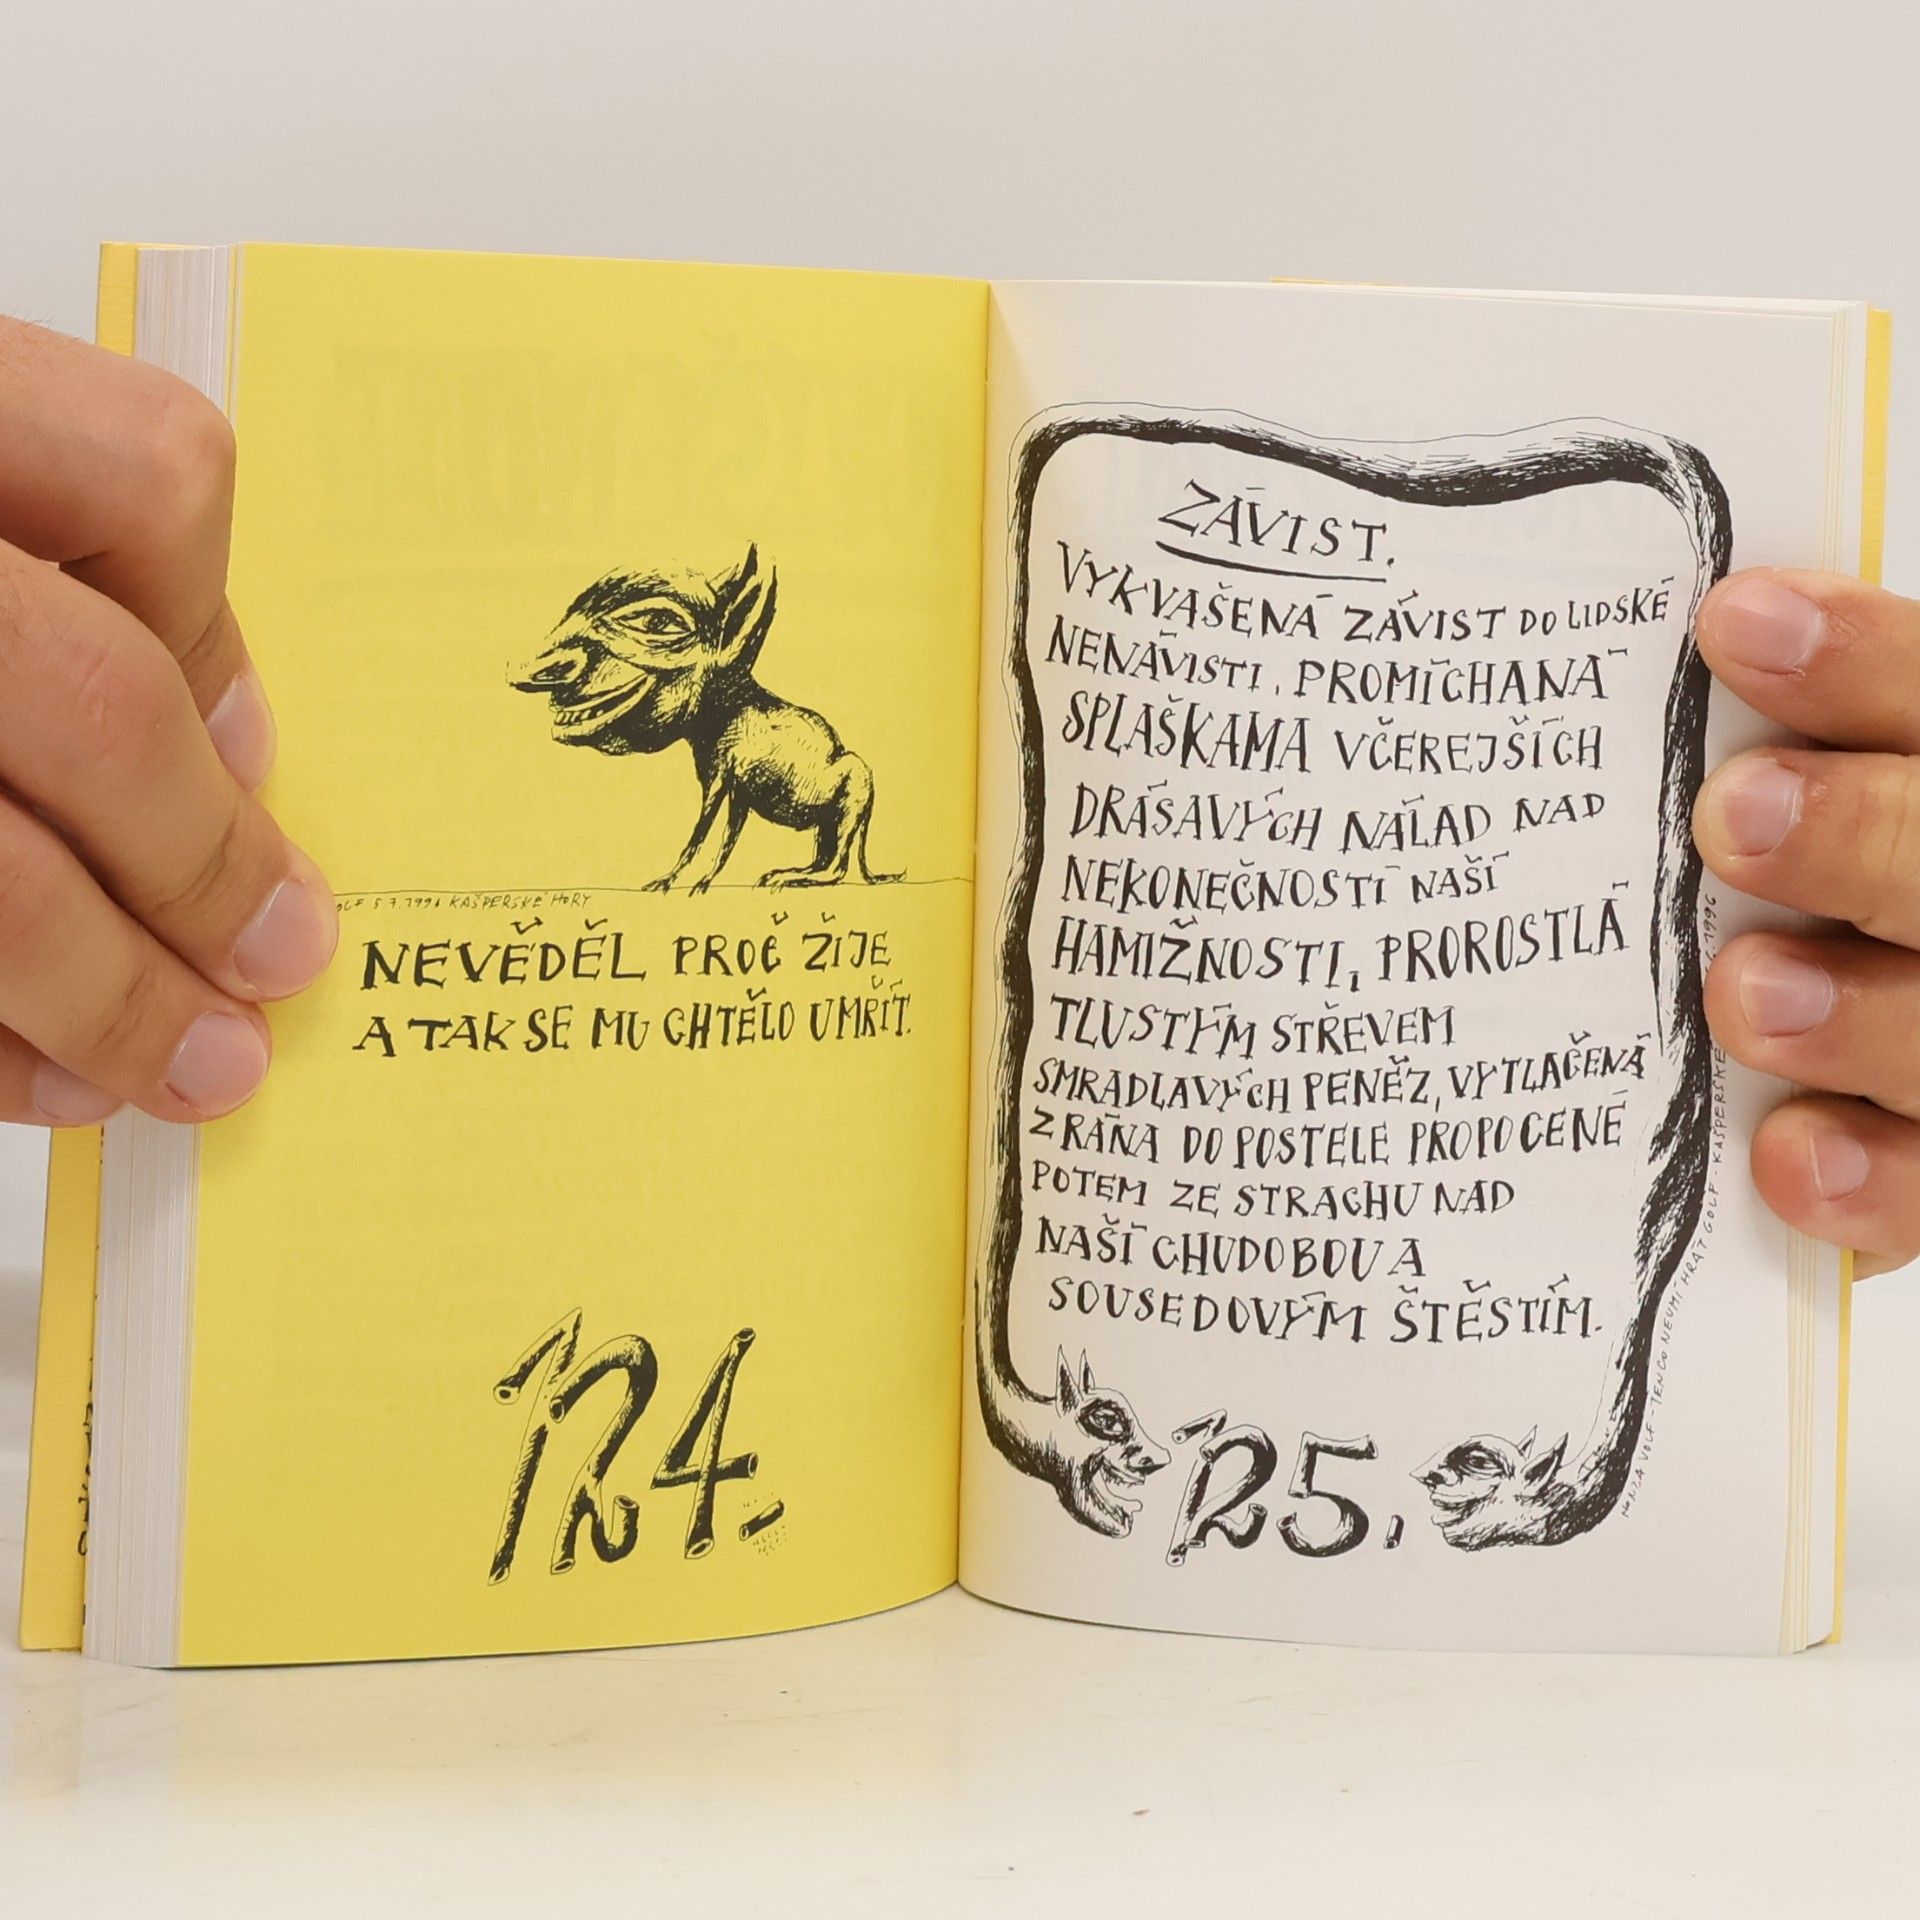 5.7.1996 KAŠPERSKÉ HORY
NEVĚDĚL PROČ ŽIJE
A TAK SE MU CHTĚLO UMŘÍT.
124.
ZÁVIST.
VYKVAŠENÁ ZÁVIST DO LIDSKÉ
NENÁVISTI, PROMÍCHANÁ
SPLAŠKAMA VČEREJŠÍCH
DRÁSAVÝCH NÁLAD NAD
NEKONEČNOSTÍ NAŠÍ
HAMIŽNOSTI, PROROSTLÁ
TLUSTÝM STŘEVEM
SMRADLAVÝCH PENĚZ, VYTLAČENÁ
Z RÁNA DO POSTELE PROPOCENÉ
POTEM ZE STRACHU NAD
NAŠÍ CHUDOBOU A
SOUSEDOVÝM ŠTĚSTÍM.
125.
HONZA VOLF - TEN CO NEUMÍ HRÁT GOLF - KAŠPERSKÉ 1996